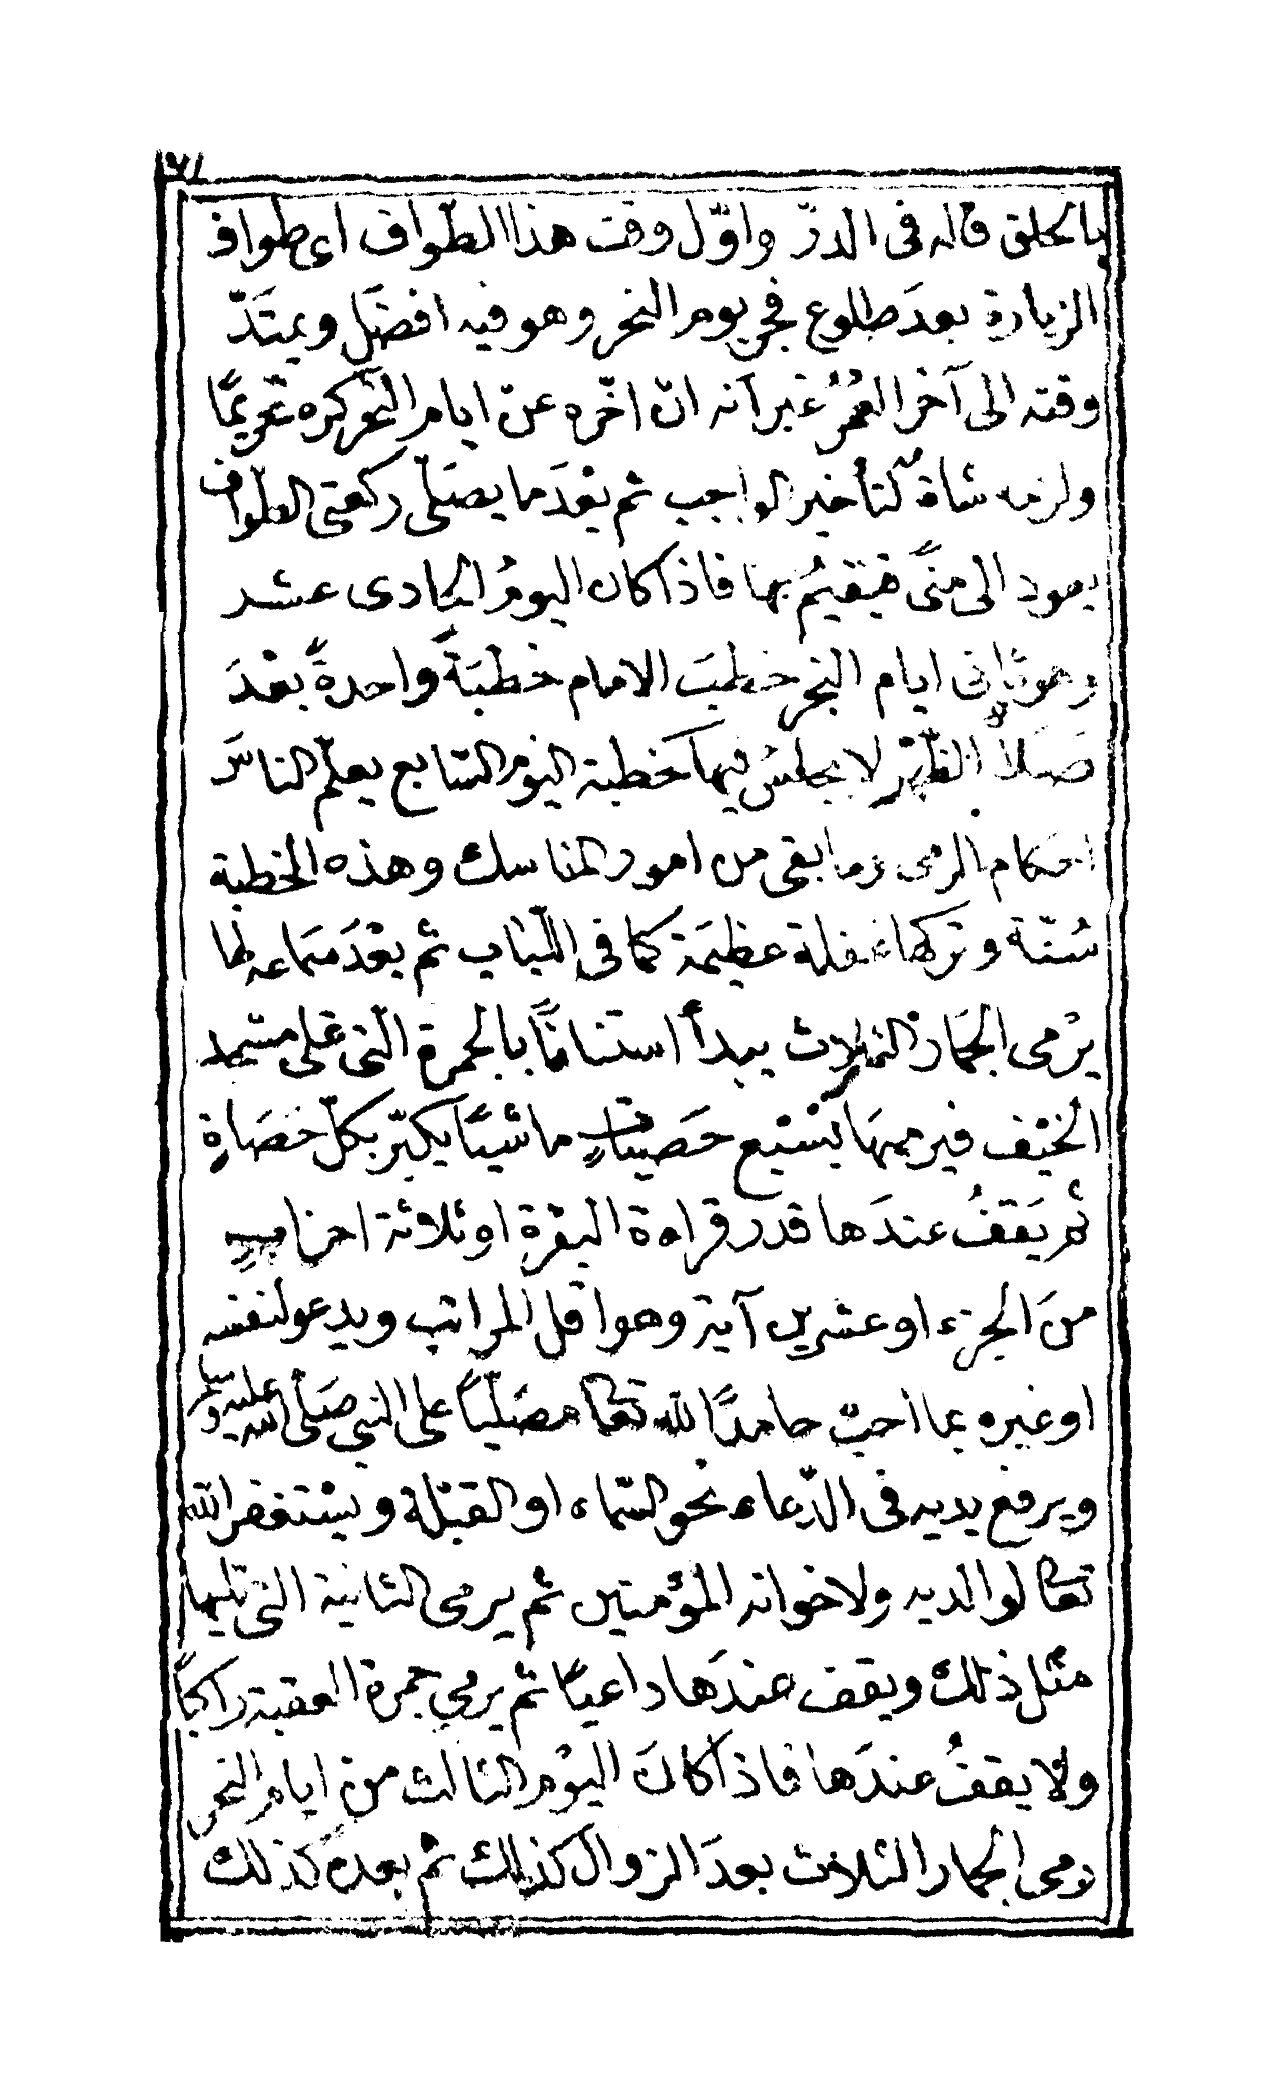 بالحلق قاله فى الدرّ واوّل وقت هذا الطواف اى طواف
الزيارة بعدَ طلوع فجر يوم النحر وهو فيه افضل ويمتَدّ
وقته الى آخر العُمُر غير آنه انْ اخّره عن ايام النحر كره تحريمًا
ولزمه شاة لتأخير الواجب ثم بعْدَ ما يصَلّى ركعتى الطّواف
يعود الى منًى فيقيمُ بها فاذا كان اليومُ الحادى عشر
وهو ثانى ايام النحر خطبَ الامام خطبَةً واحدةً بعْدَ
صَلاة الظّهْر لا يجلسُ فيها كخطبة اليوْم السّابع يعلّم الناسَ
احكام الرمى وما بقى من امور المناسك وهذه الخطبة
سُنّة وتركها غفلة عظيمَة كما فى اللّباب ثم بعْدَ سَماعه لها
يرْمى الجمَار الثلاث يبدأ استنانًا بالجمرة التى على مسْجد
الخيْف فيرميهَا بسْبْع حَصيَاتٍ ماشيًا يكبّر بكلّ حَصَاةٍ
ثم يَقفُ عندَها قدر قراءة البقرةِ او ثلاثة احزابٍ
منَ الجزء او عشرين آية وهو اقل المراتب ويدعو لنفسه
او غيره بما احبّ حامدًا لله تعالى مصَلّيًا على النبي صَلّى الله عليه وسلم
ويرفع يديه فى الدّعاء نحو السّماء او القبْلة ويسْتغفر الله
تعالى لوالديه ولاخوانه المؤمنين ثم يرمى الثانية التى تليها
مثل ذلك ويقف عندَها داعيًا ثم يرمي جمرة العقبة راكبًا
ولا يقفُ عندَها فاذا كانَ اليوْم الثالث من ايام النحر
رمى الجمار الثلاث بعدَ الزوال كذلك ثم بعده كذلك